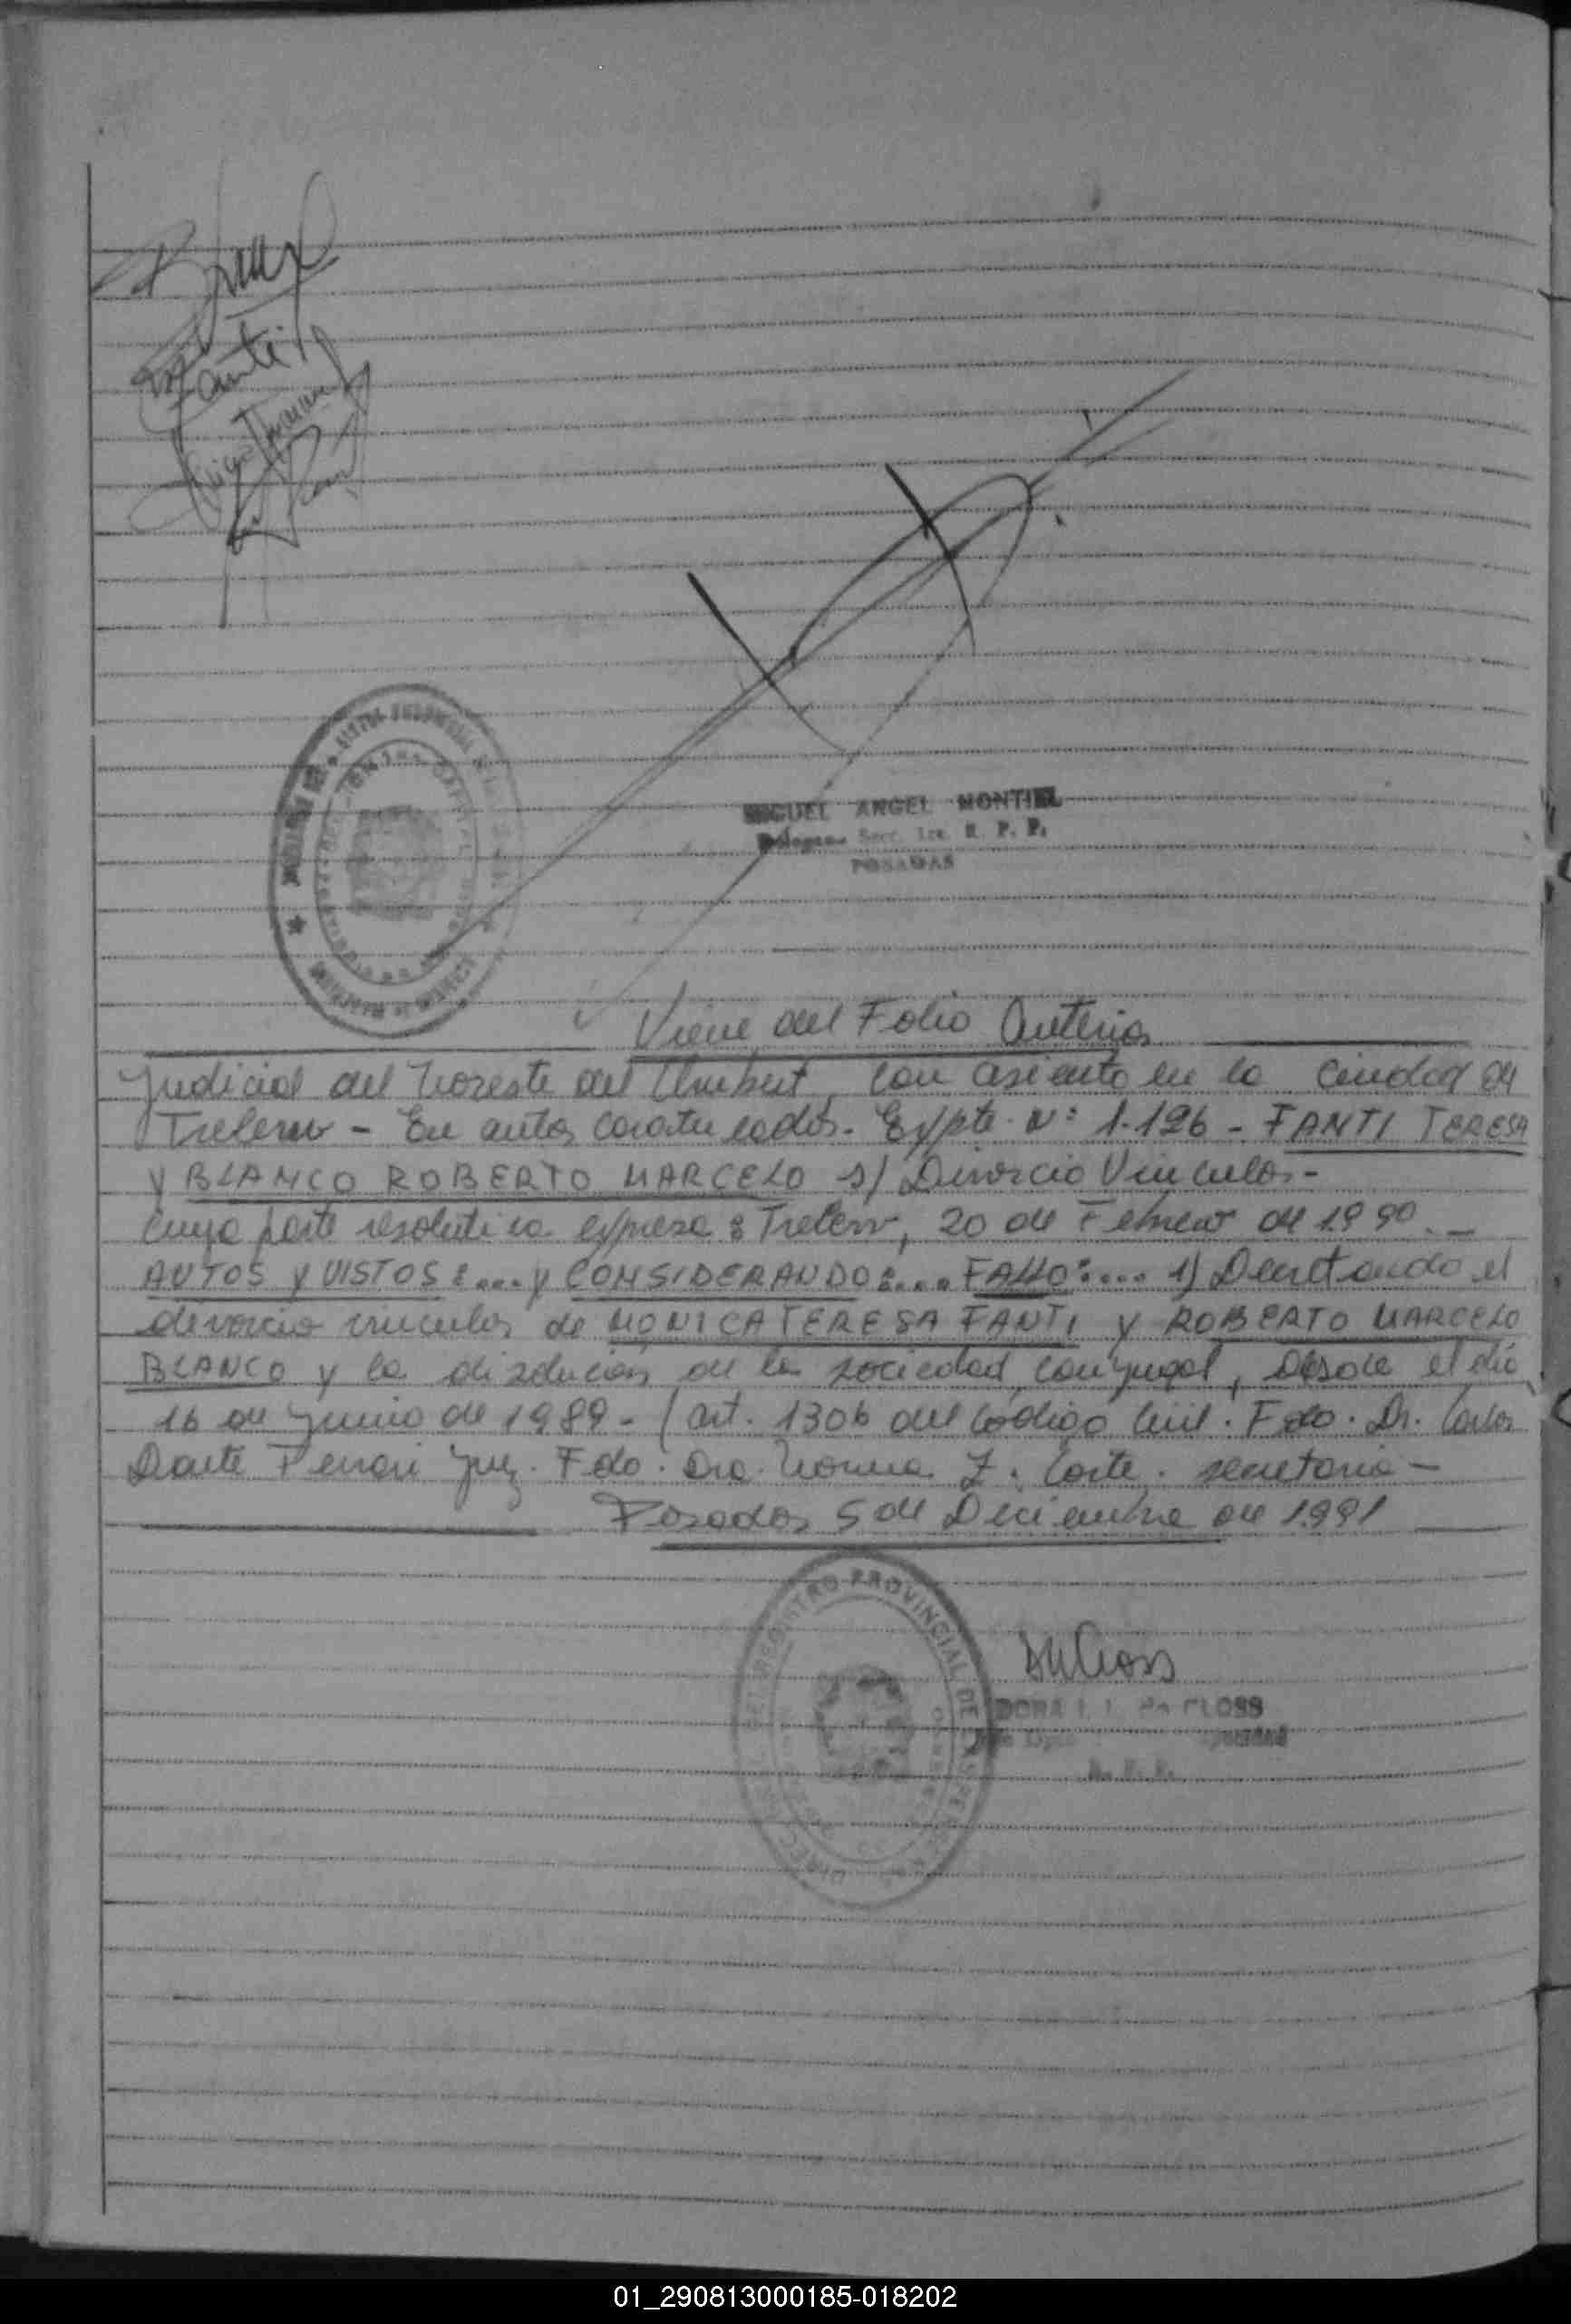 Blanco
Fanti
MIGUEL ANGEL MONTIEL
Secc. 1ra. R. P. P.
POSADAS
Viene del Folio Anterior
Judicial del Noreste del Chubut, con asiento en la Ciudad de
Trelew - En autos caratulados - Expte. Nº 1.126 - FANTI TERESA
y BLANCO ROBERTO MARCELO s/ Divorcio Vincular -
Cuya parte resolutiva expresa: Trelew, 20 de Febrero de 1990. -
AUTOS y VISTOS:.... y CONSIDERANDO:.... FALLO:.... 1) Decretando el
divorcio vincular de MONICA TERESA FANTI y ROBERTO MARCELO
BLANCO y la disolución de la sociedad conyugal, desde el día
16 de Junio de 1989 - (art. 1306 del Código Civil. Fdo. Dr. Carlos
Dante Juez. Fdo. Dra. Norma Z. Corte. secretaria -
Posadas 5 de Diciembre de 1991
REGISTRO PROVINCIAL DE LAS PERSONAS
DORA I. L. de CLOSS
R. P. P.
01_290813000185-018202